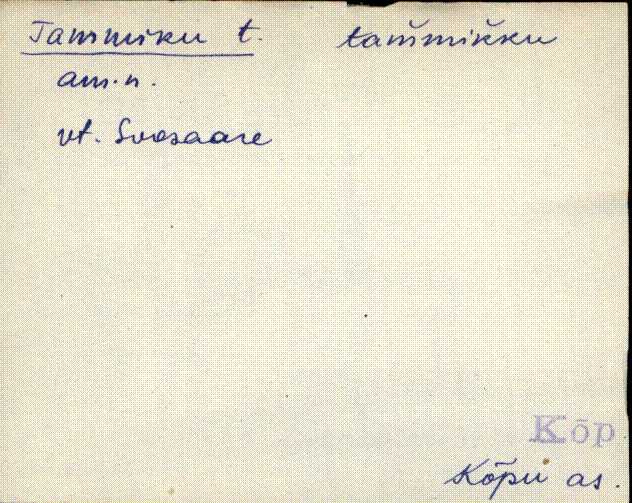 Tammiku t. tam̆mik̆ku
am.n.
vt. Soosaare
Kõp
Kõpu as.